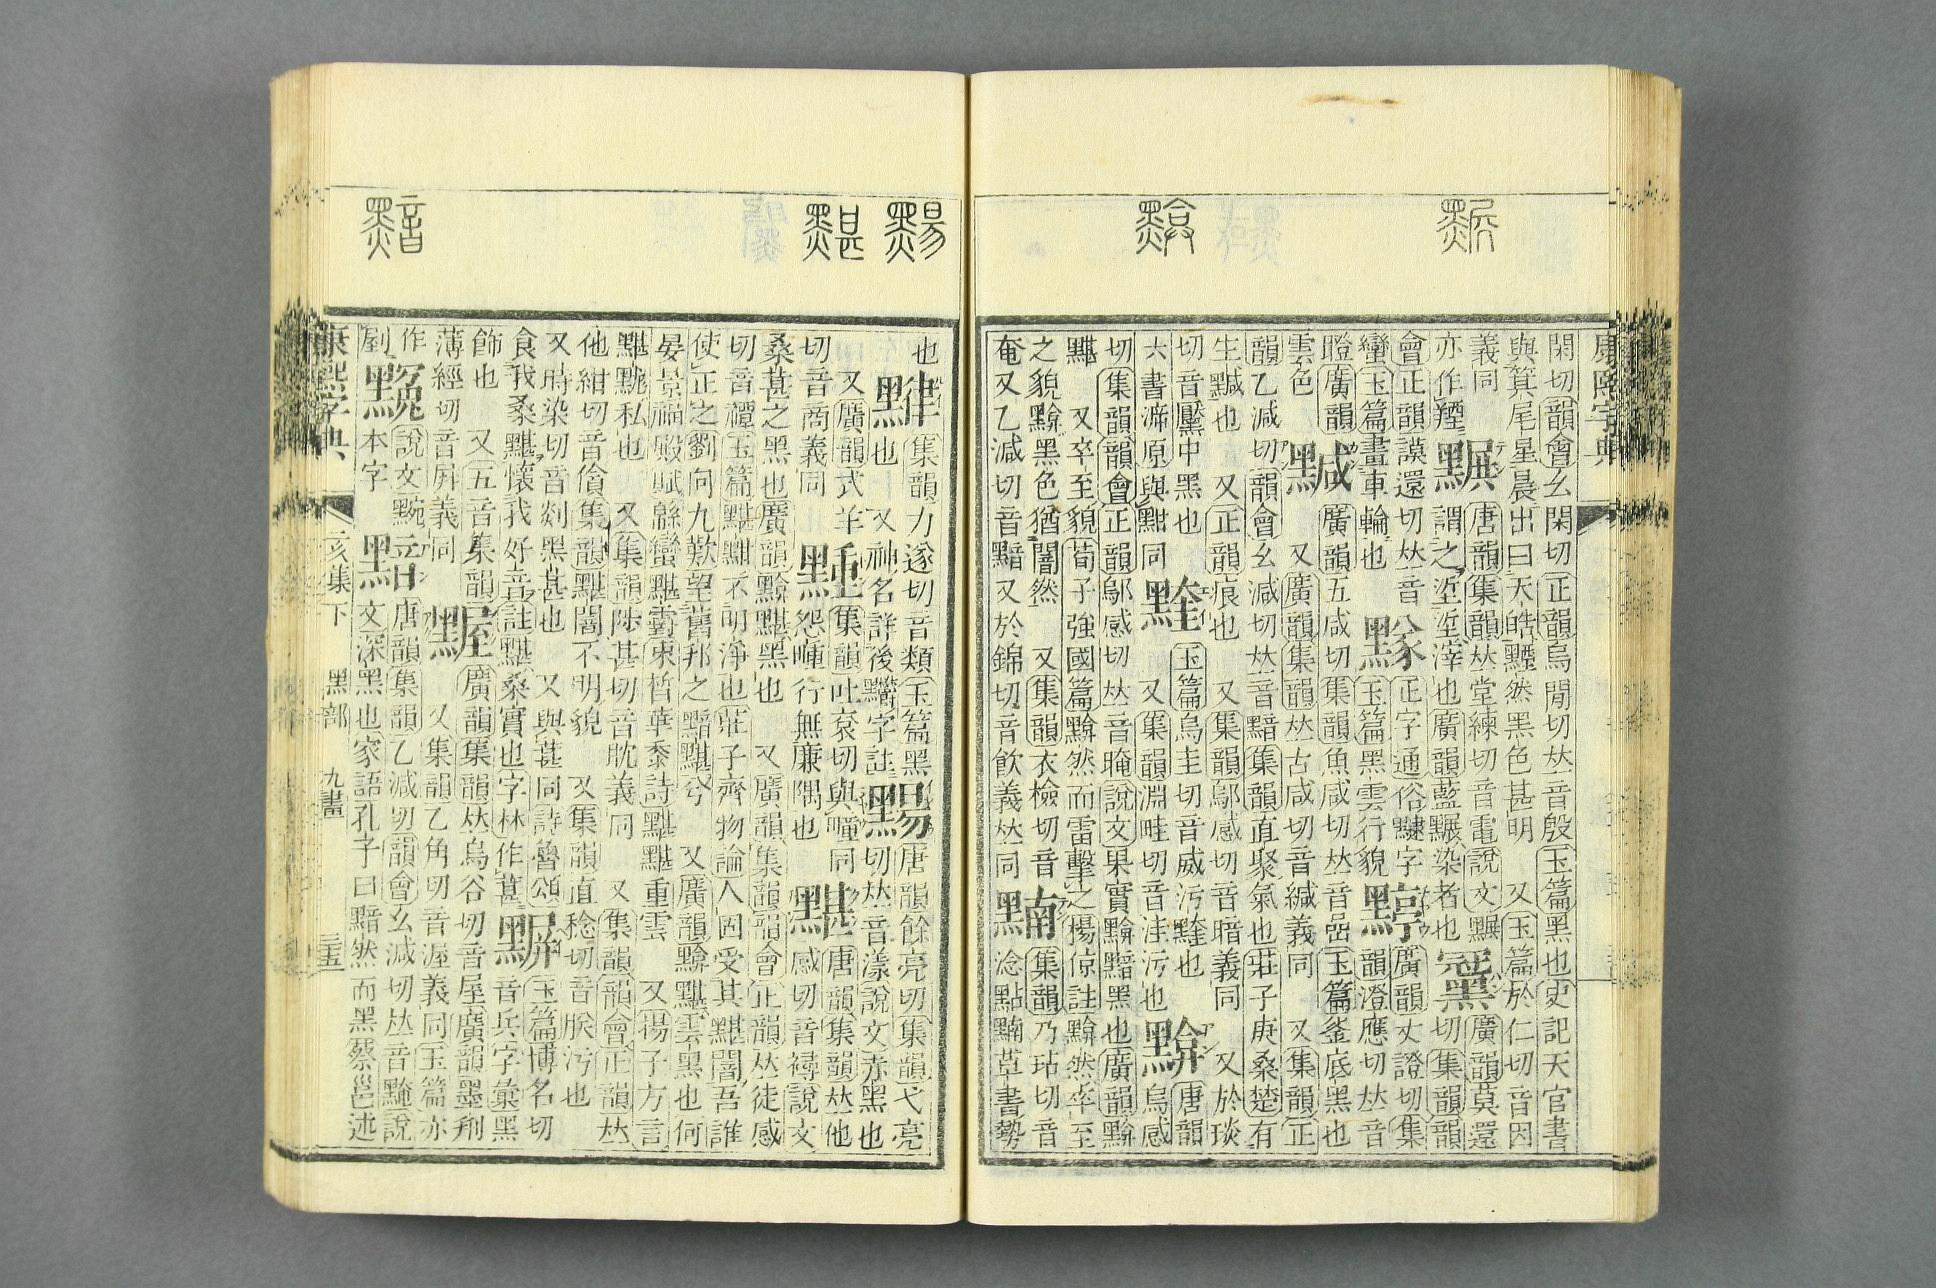 康熙字典
閑切韻會幺閑切正韻烏閒切𠀤音殷玉篇黑也史記天官書
與箕尾星晨出曰天皓黫然黑色甚明 又玉篇於仁切音因
義同 黰 唐韻集韻𠀤堂練切音電說文黰
亦作 謂之垽垽滓也廣韻藍黰染者也 廣韻莫還
會正韻謨還切𠀤音 正字通俗 字 廣韻丈證切集
蠻玉篇畫車輪也 玉篇黑雲行貌 韻澄應切𠀤音
瞪廣韻 黬 廣韻五咸切集韻魚咸切𠀤音嵒玉篇釜底黑也
雲色 又廣韻集韻𠀤古咸切音緘義同 又集韻正
韻乙減切韻會幺減切𠀤音黯集韻直聚氣也莊子庚桑楚有
生黬也 又正韻痕也 又集韻鄔感切音暗義同 又於琰
切音黶中黑也 玉篇烏圭切音威污黊也 黭 唐韻
六書 原與黚同 又集韻淵畦切音洼污也 烏感
切集韻韻會正韻鄔感切𠀤音晻說文果實黭黯黑也廣韻黭
黮 又卒至貌荀子強國篇黭然而雷擊之楊倞註黭然卒至
之貌黭黑色猶闇然 又集韻衣檢切音 集韻乃玷切音
奄又乙減切音黯又於錦切音飮義𠀤同 淰點 草書勢
也 集韻力遂切音類玉篇黑 唐韻餘亮切集韻弋亮
也 又神名詳後 字註 切𠀤音漾說文赤黑也
又廣韻式羊 集韻吐袞切與疃同 黮 唐韻集韻𠀤他
切音商義同 怨 行無廉隅也 感切音襑說文
桑葚之黑也廣韻黭黮黑也 又廣韻集韻韻會正韻𠀤徒感
切音禫玉篇黮黚不明淨也莊子齊物論人固受其黮闇吾誰
使正之劉向九歎望舊邦之黯黮兮 又廣韻黭黮雲黑也何
晏景福殿賦緜蠻黮霴束晳華黍詩黮黮重雲 又揚子方言
黮 私也 又集韻陟甚切音耽義同 又集韻韻會正韻𠀤
他紺切音僋集韻黮闇不明貌 又集韻直稔切音朕污也
又時染切音剡黑甚也 又與葚同詩魯頌 玉篇博名切
食我桑黮懷我好音註黮桑實也字林作葚 音兵字彙黑
飾也 又五音集韻 黫 廣韻集韻𠀤烏谷切音屋廣韻墨刑
薄經切音屛義同 又集韻乙角切音渥義同玉篇亦
作 說文黦 唐韻集韻乙減切韻會幺減切𠀤音黤說
𠜓 本字 文深黑也家語孔子曰黯然而黑蔡邕述
康熙字典 亥集下 黑部 九畫 三五